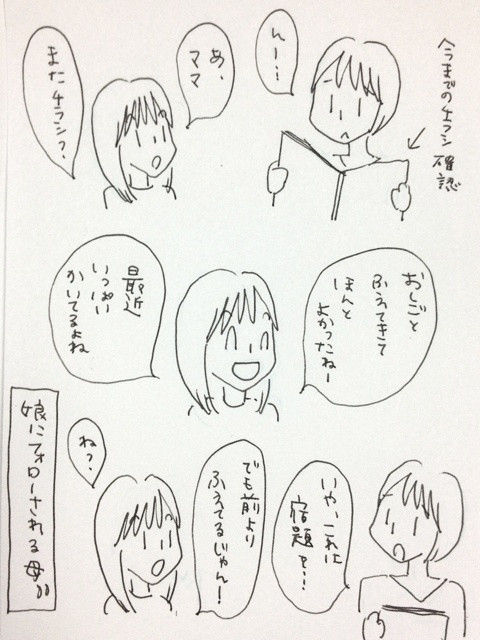 今までのチラシ
確認
んー…
あ、
ママ
またチラシ?
おしごと
ふえてきて
ほんと
よかったねー
最近
いっぱい
かいてるよね
いや、これは
宿題で…
でも前より
ふえてるじゃん!
ね?
娘にフォローされる母